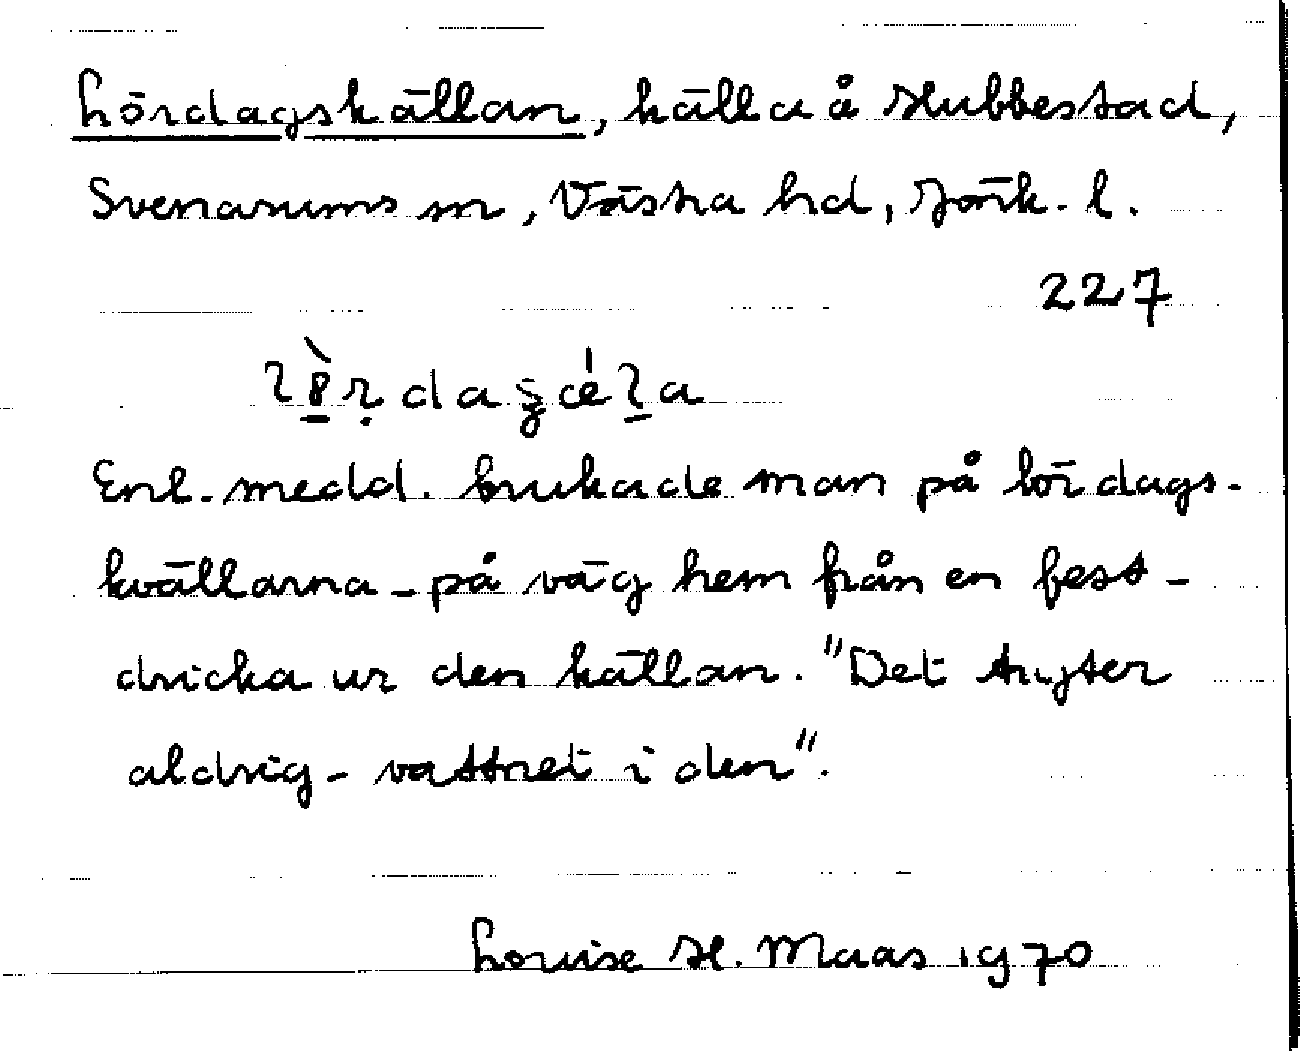 Lördagskällan, källa å Hubbestad,
Svenarums sn, Västra hd, Jönk. l.
227
Enl. medd. brukade man på lördags-
kvällarna - på väg hem från en fest -
dricka ur den källan. "Det tryter
aldrig - vattnet i den".
Louise H. Maas 1970